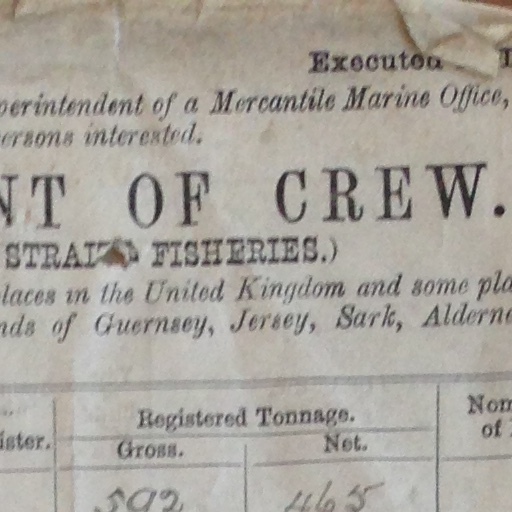 Executed
perintendent of a Mercantile Marine Office,
ersons interested.
NT OF CREW.
FISHERIES.)
laces in the United Kingdom and some pla
nds of Guernsey, Jersey, Sark, Alderne
ister.
Registered Tonnage.
Nom
of
Gross.
Net.
592
465